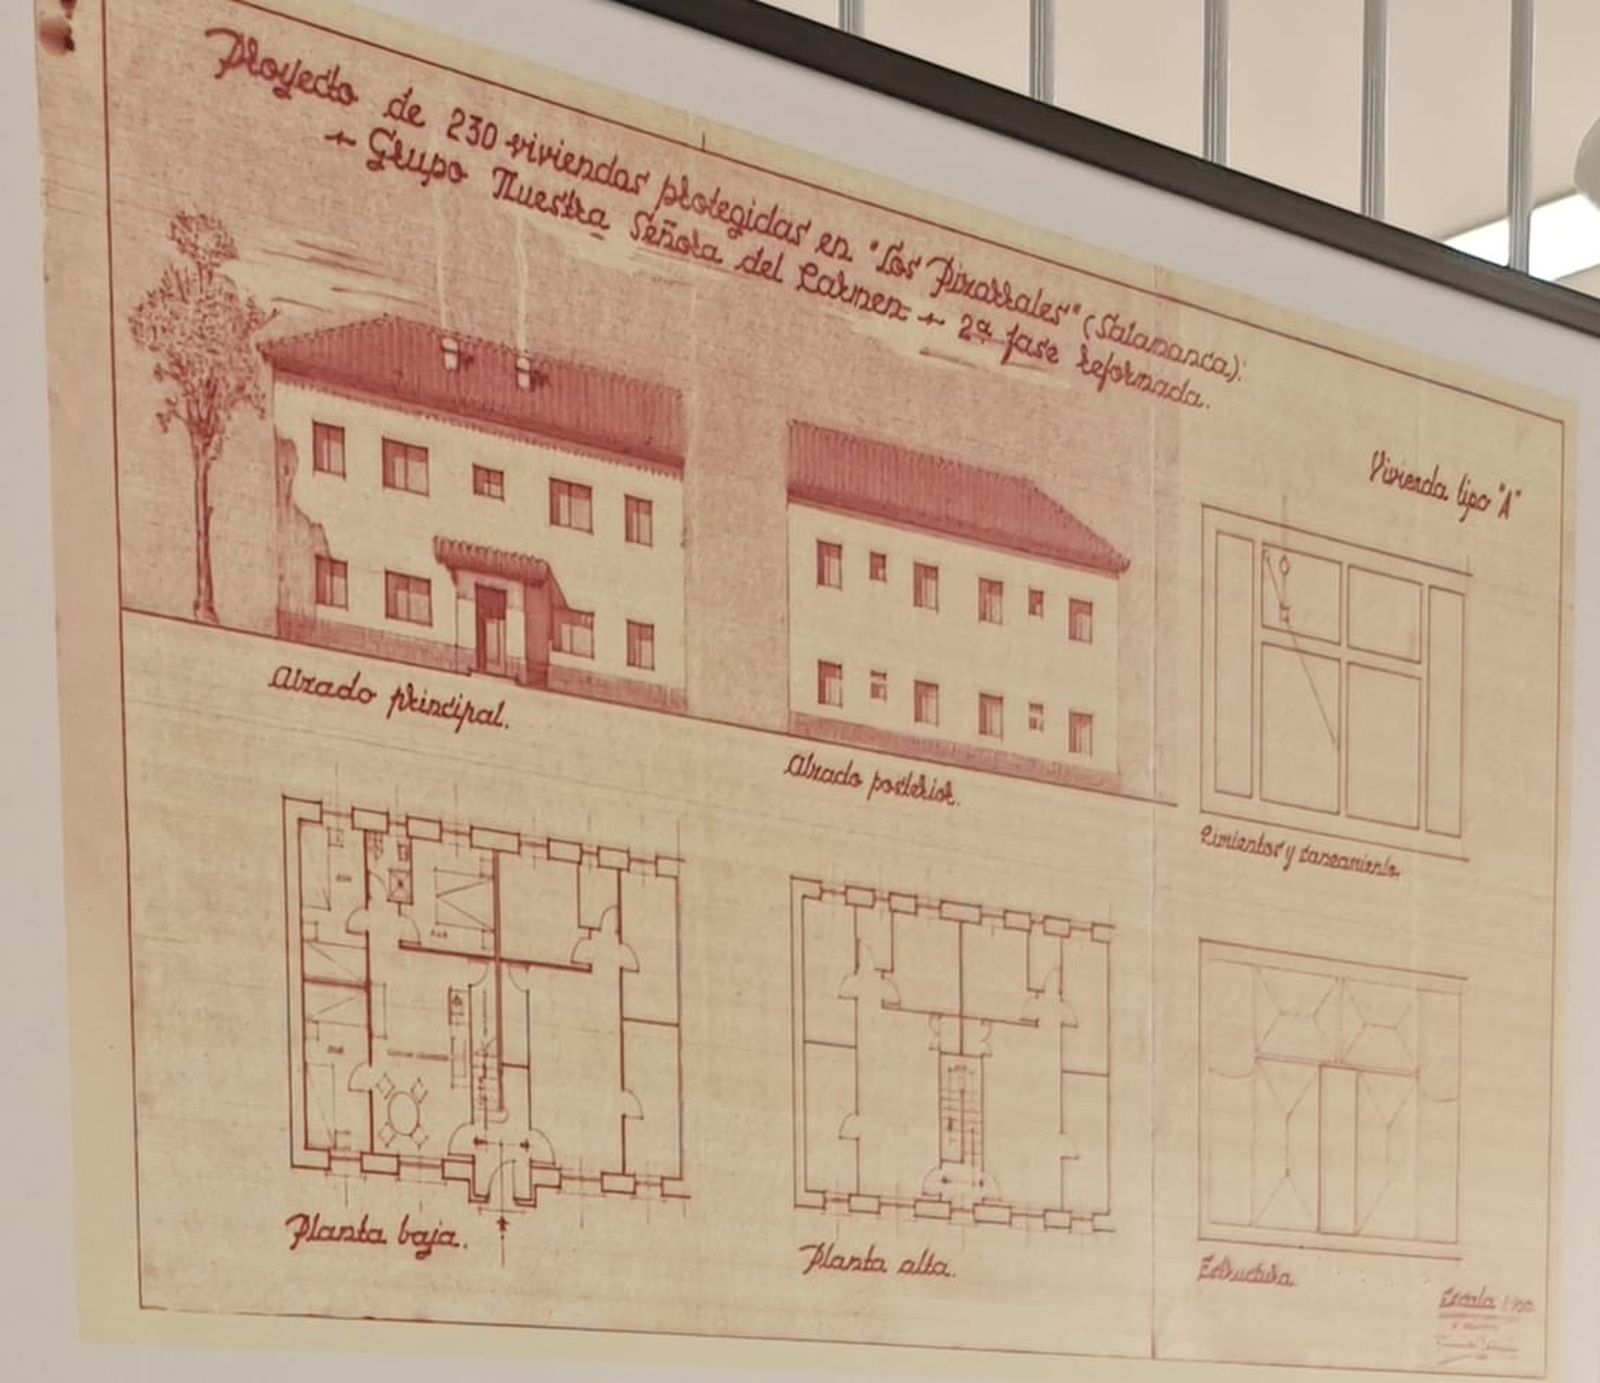 Proyecto de 230 viviendas protegidas en "Los Pizarrales" (Salamanca):
Grupo Nuestra Señora del Carmen - 2ª fase reformada.
Vivienda tipo "A"
Alzado principal.
Alzado posterior.
Cimientos y saneamiento.
Planta baja.
Planta alta.
Estructura.
Escala